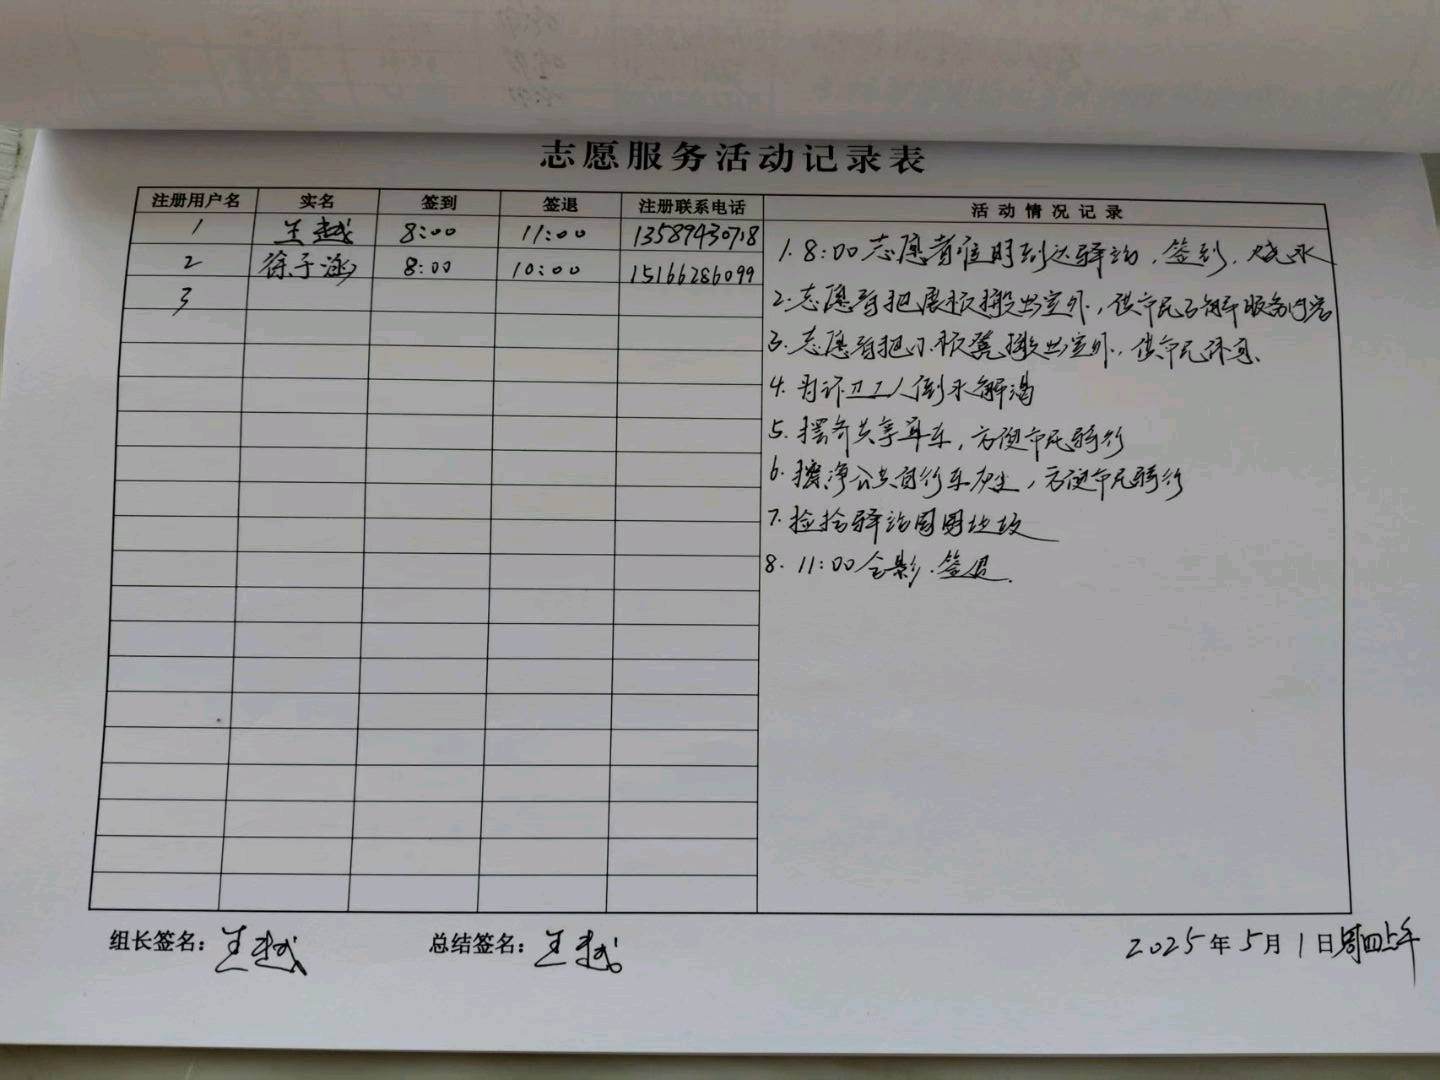 志愿服务活动记录表
注册用户名 实名 签到 签退 注册联系电话 活动情况记录
1 王越 8:00 11:00 13589430718
2 徐子涵 8:00 10:00 15166286099
3
1. 8:00志愿者准时到达驿站，签到，烧水
2. 志愿者把展板搬出室外，供市民了解服务内容
3. 志愿者把小板凳搬出室外，供市民休息.
4. 为环卫工人倒水解渴
5. 摆齐共享单车，方便市民骑行
6. 擦净公共自行车灰尘，方便市民骑行
7. 捡拾驿站周围垃圾
8. 11:00合影.签退.
组长签名：王越 总结签名：王越 2025年5月1日周四上午